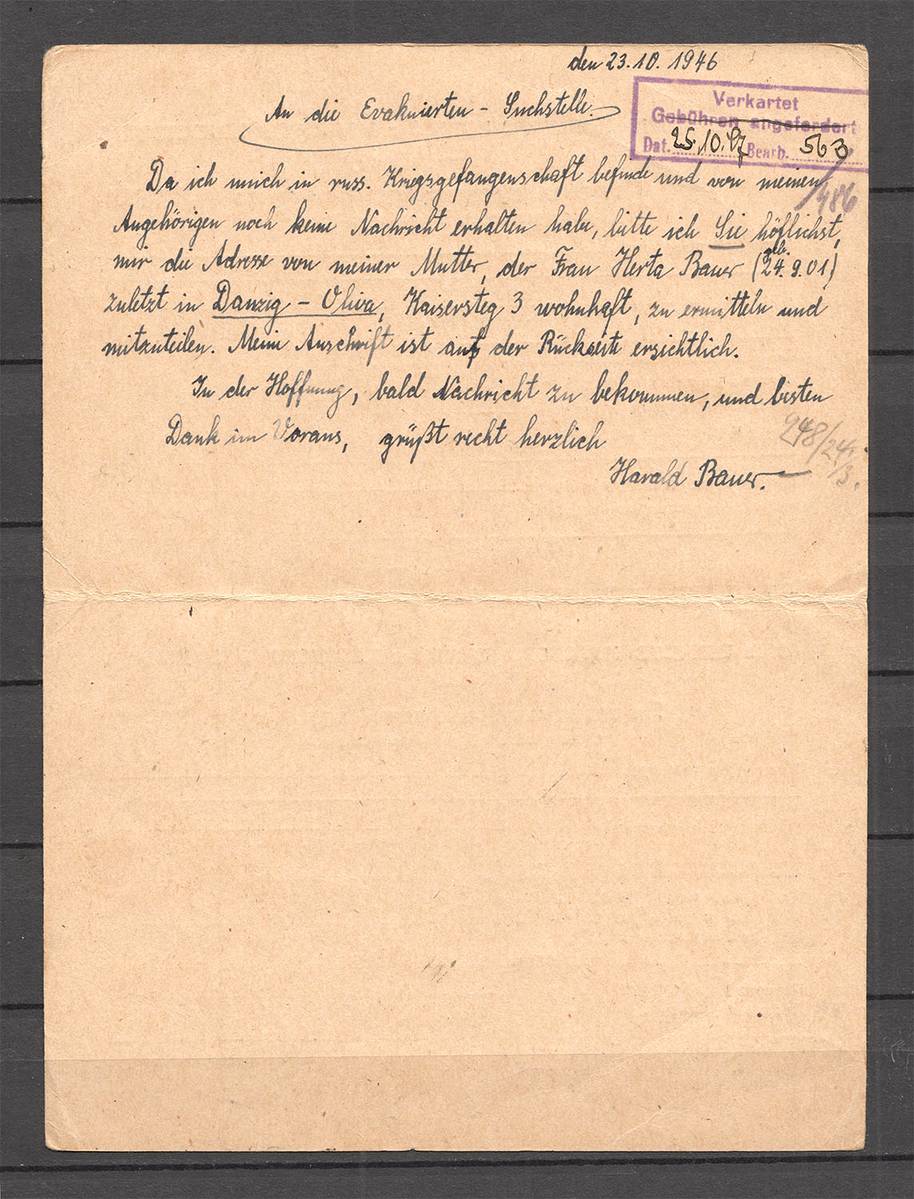 den 23.10.1946
An die Evakuierten - Suchstelle.
Verkartet
Gebühren angefordert
Dat. 25.10.47 Bearb. 563
/486
Da ich mich in russ. Krigsgefangenschaft befinde und von meinen
Angehörigen noch keine Nachricht erhalten habe, bitte ich Sie höflichst,
mir die Adresse von meiner Mutter, der Frau Herta Bauer (geb. 24.9.01)
zuletzt in Danzig - Oliva, Kaisersteg 3 wohnhaft, zu ermitteln und
mitzuteilen. Meine Anschrift ist auf der Rückseite ersichtlich.
In der Hoffnung, bald Nachricht zu bekommen, und besten
Dank im Voraus, grüßt recht herzlich
248/24/3.
Harald Bauer.